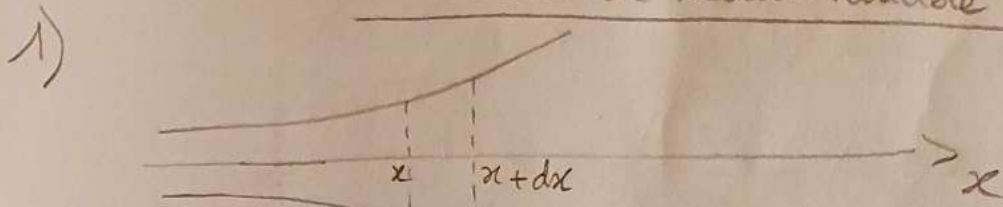 1)
x x+dx
x